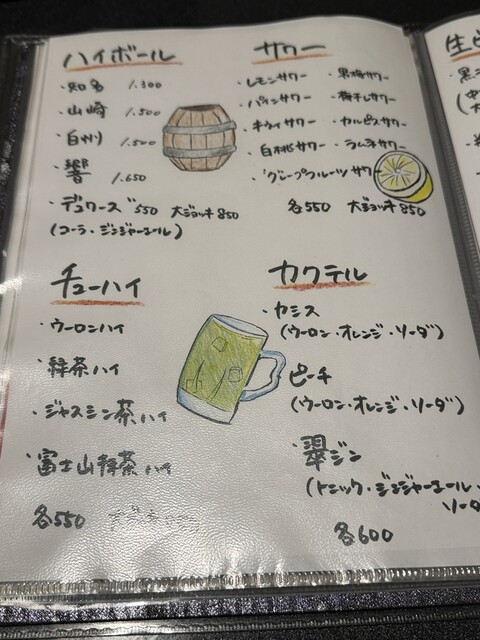 ハイボール
知多 1.300
山崎 1.500
白州 1.500
響 1.650
・デュワーズ 550 大ジョッキ 850
(コーラ・ジンジャーエール)
サワー
・レモンサワー ・黒梅サワー
・パインサワー ・梅干しサワー
・キウイサワー ・カルピスサワー
・白桃サワー ・ラムネサワー
・グレープフルーツサワー
各550 大ジョッキ850
チューハイ
・ウーロンハイ
・緑茶ハイ
・ジャスミン茶ハイ
・富士山緑茶ハイ
各550
カクテル
・カシス
(ウーロン・オレンジ・ソーダ)
ピーチ
(ウーロン・オレンジ・ソーダ)
・翠ジン
(トニック・ジンジャーエール・
ソーダ
各600
生ビ